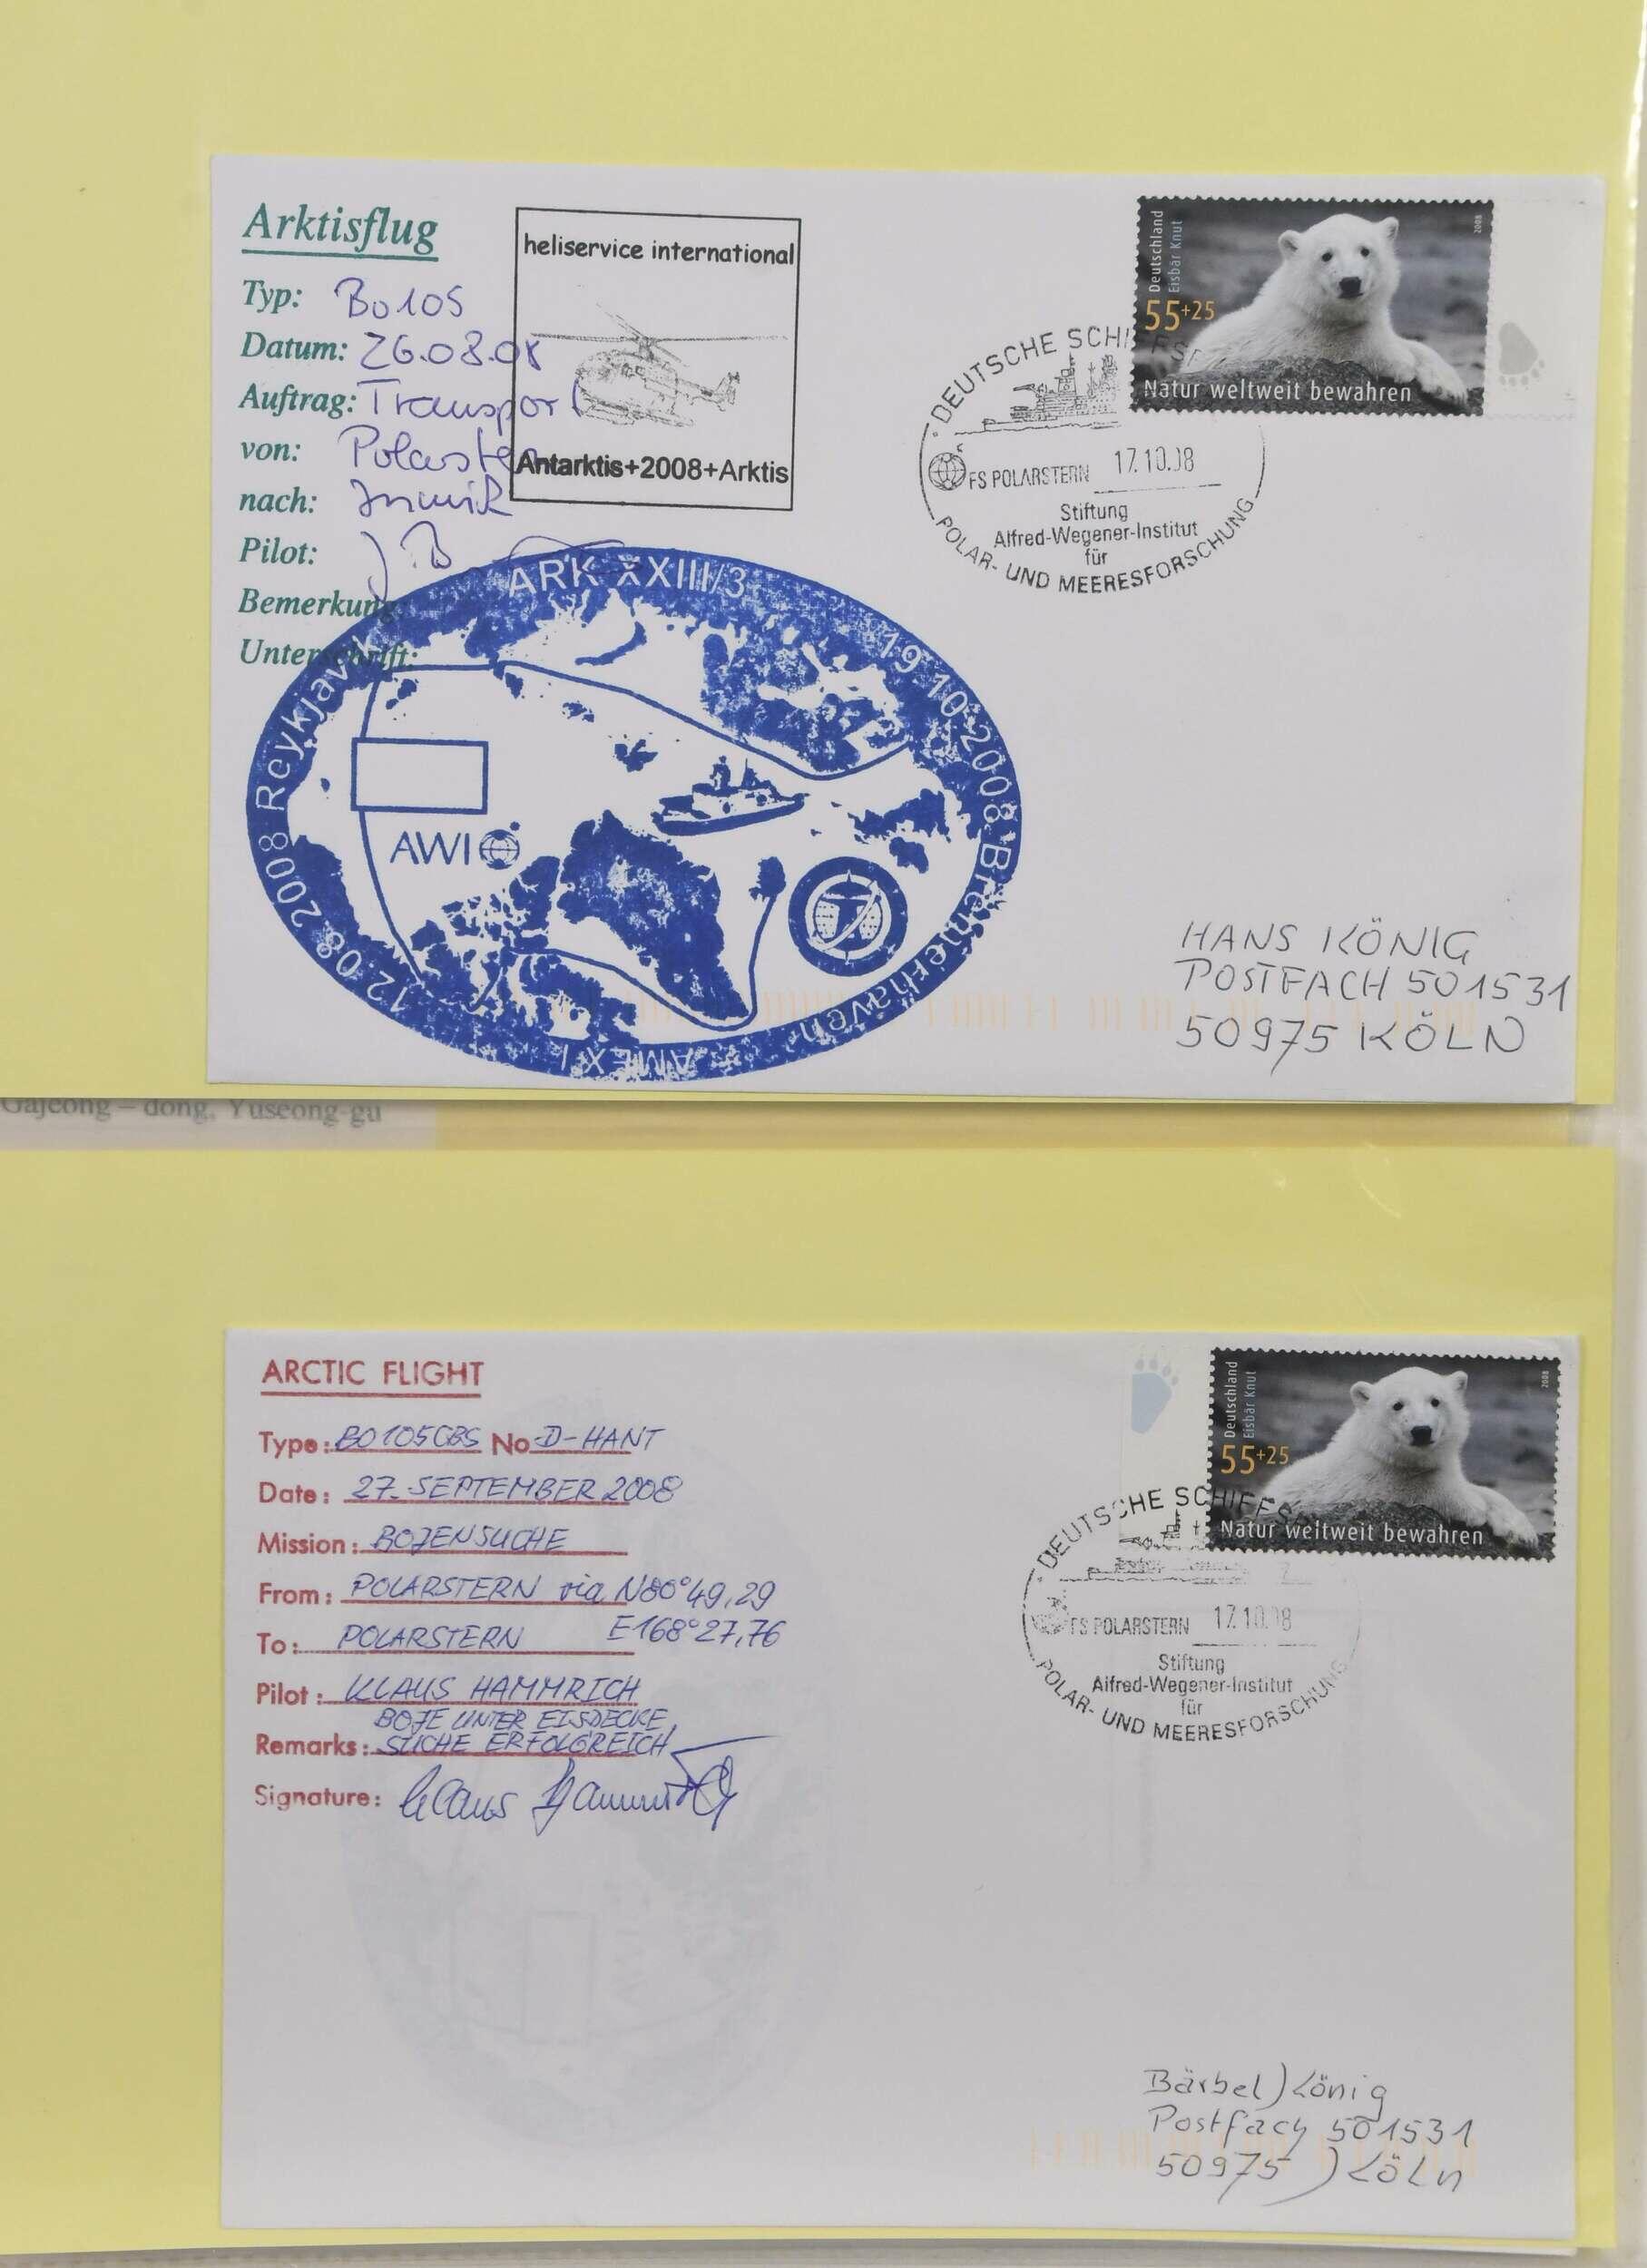 Arktisflug
Typ: Bo 105
Datum: 26.08.08
Auftrag: Transport
von: Polarstern
nach: Inuvik
Pilot:
Bemerkung
Unterschrift:
heliservice international
Antarktis+2008+Arktis
Deutschland
Eisbär Knut
2008
55+25
Natur weltweit bewahren
DEUTSCHE SCHIFFSP
FS POLARSTERN 17.10.08
Stiftung
Alfred-Wegener-Institut
für
POLAR- UND MEERESFORSCHUNG
ARK XXIII/3
12.08.2008 Reykjavik
19.10.2008 Bremerhaven
AMEX I
AWI
HANS KÖNIG
POSTFACH 501531
50975 KÖLN
Gajeong – dong, Yuseong-gu
ARCTIC FLIGHT
Type: BO105CBS No D-HANT
Date: 27. SEPTEMBER 2008
Mission: BOJENSUCHE
From: POLARSTERN via N80°49,29
To: POLARSTERN E168°27,76
Pilot: KLAUS HAMMRICH
BOJE UNTER EISDECKE
Remarks: SUCHE ERFOLGREICH
Signature: Klaus Hammrich
Deutschland
Eisbär Knut
2008
55+25
Natur weltweit bewahren
DEUTSCHE SCHIFFSP
FS POLARSTERN 17.10.08
Stiftung
Alfred-Wegener-Institut
für
POLAR- UND MEERESFORSCHUNG
Bärbel König
Postfach 501531
50975 Köln